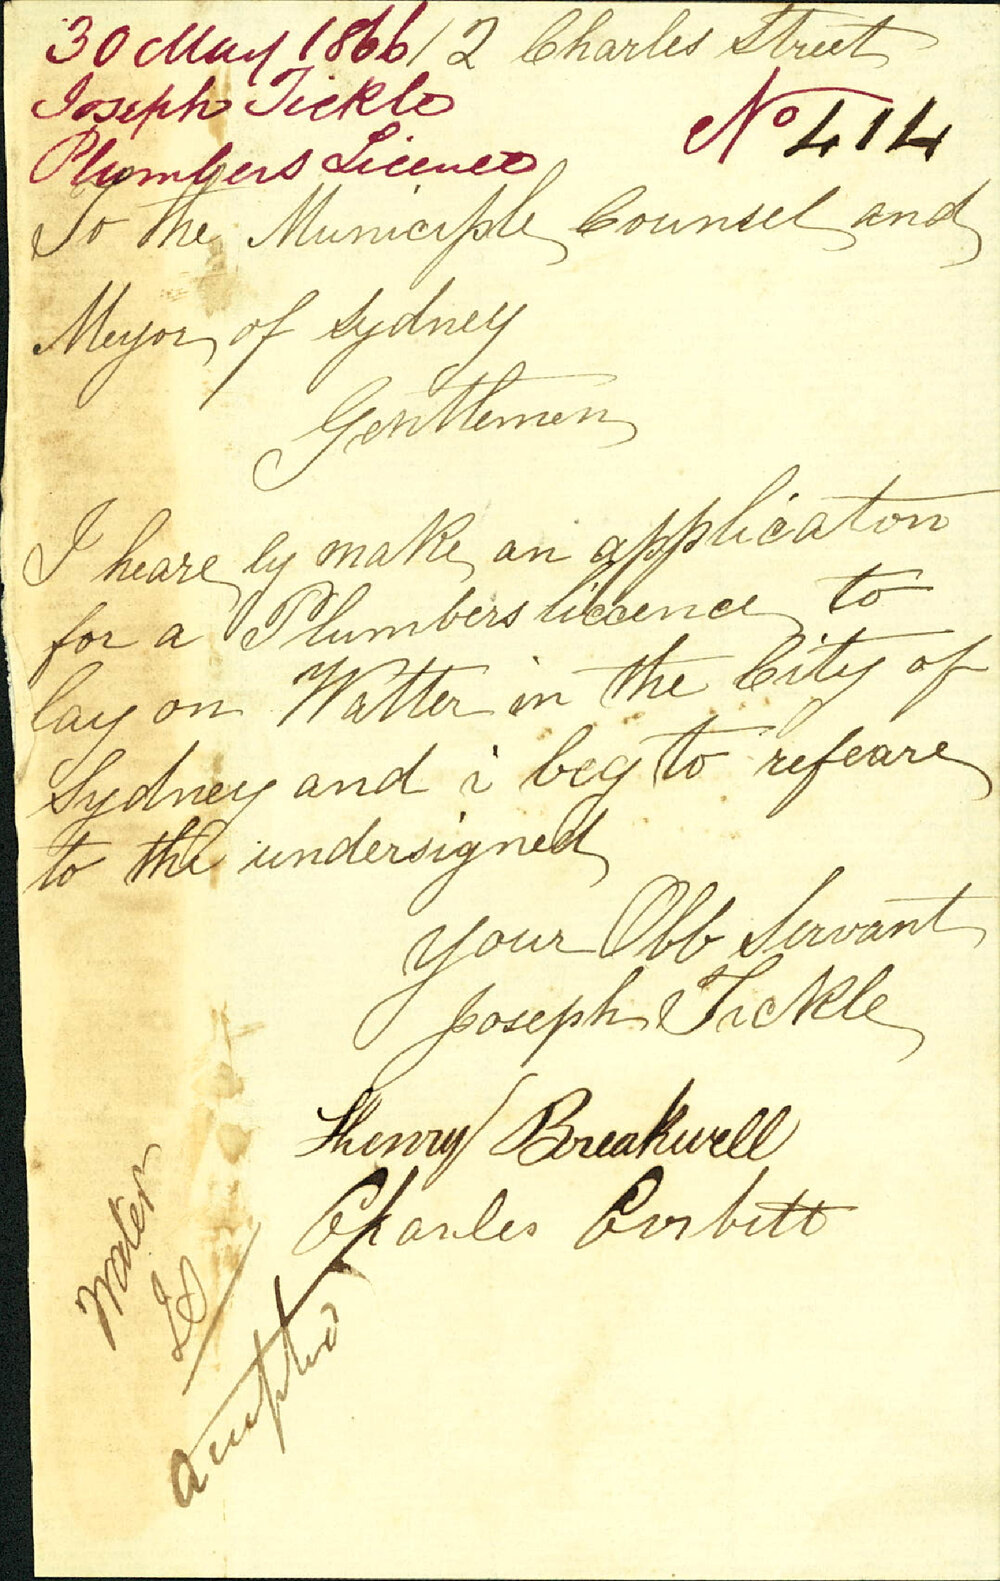 30 May 1866 / 2 Charles Street
Joseph Tickle
No 414
Plumbers Licence
To the Municiple Counsel and
Meyor of Sydney
Gentlemen
I heare by make an applicaton
for a Plumbers licence to
lay on Watter in the City of
Sydney and i beg to refeare
to the undersigned
your Obb Servant
Joseph Tickle
Henry Breakwell
Charles Corbitt
Water
accepted